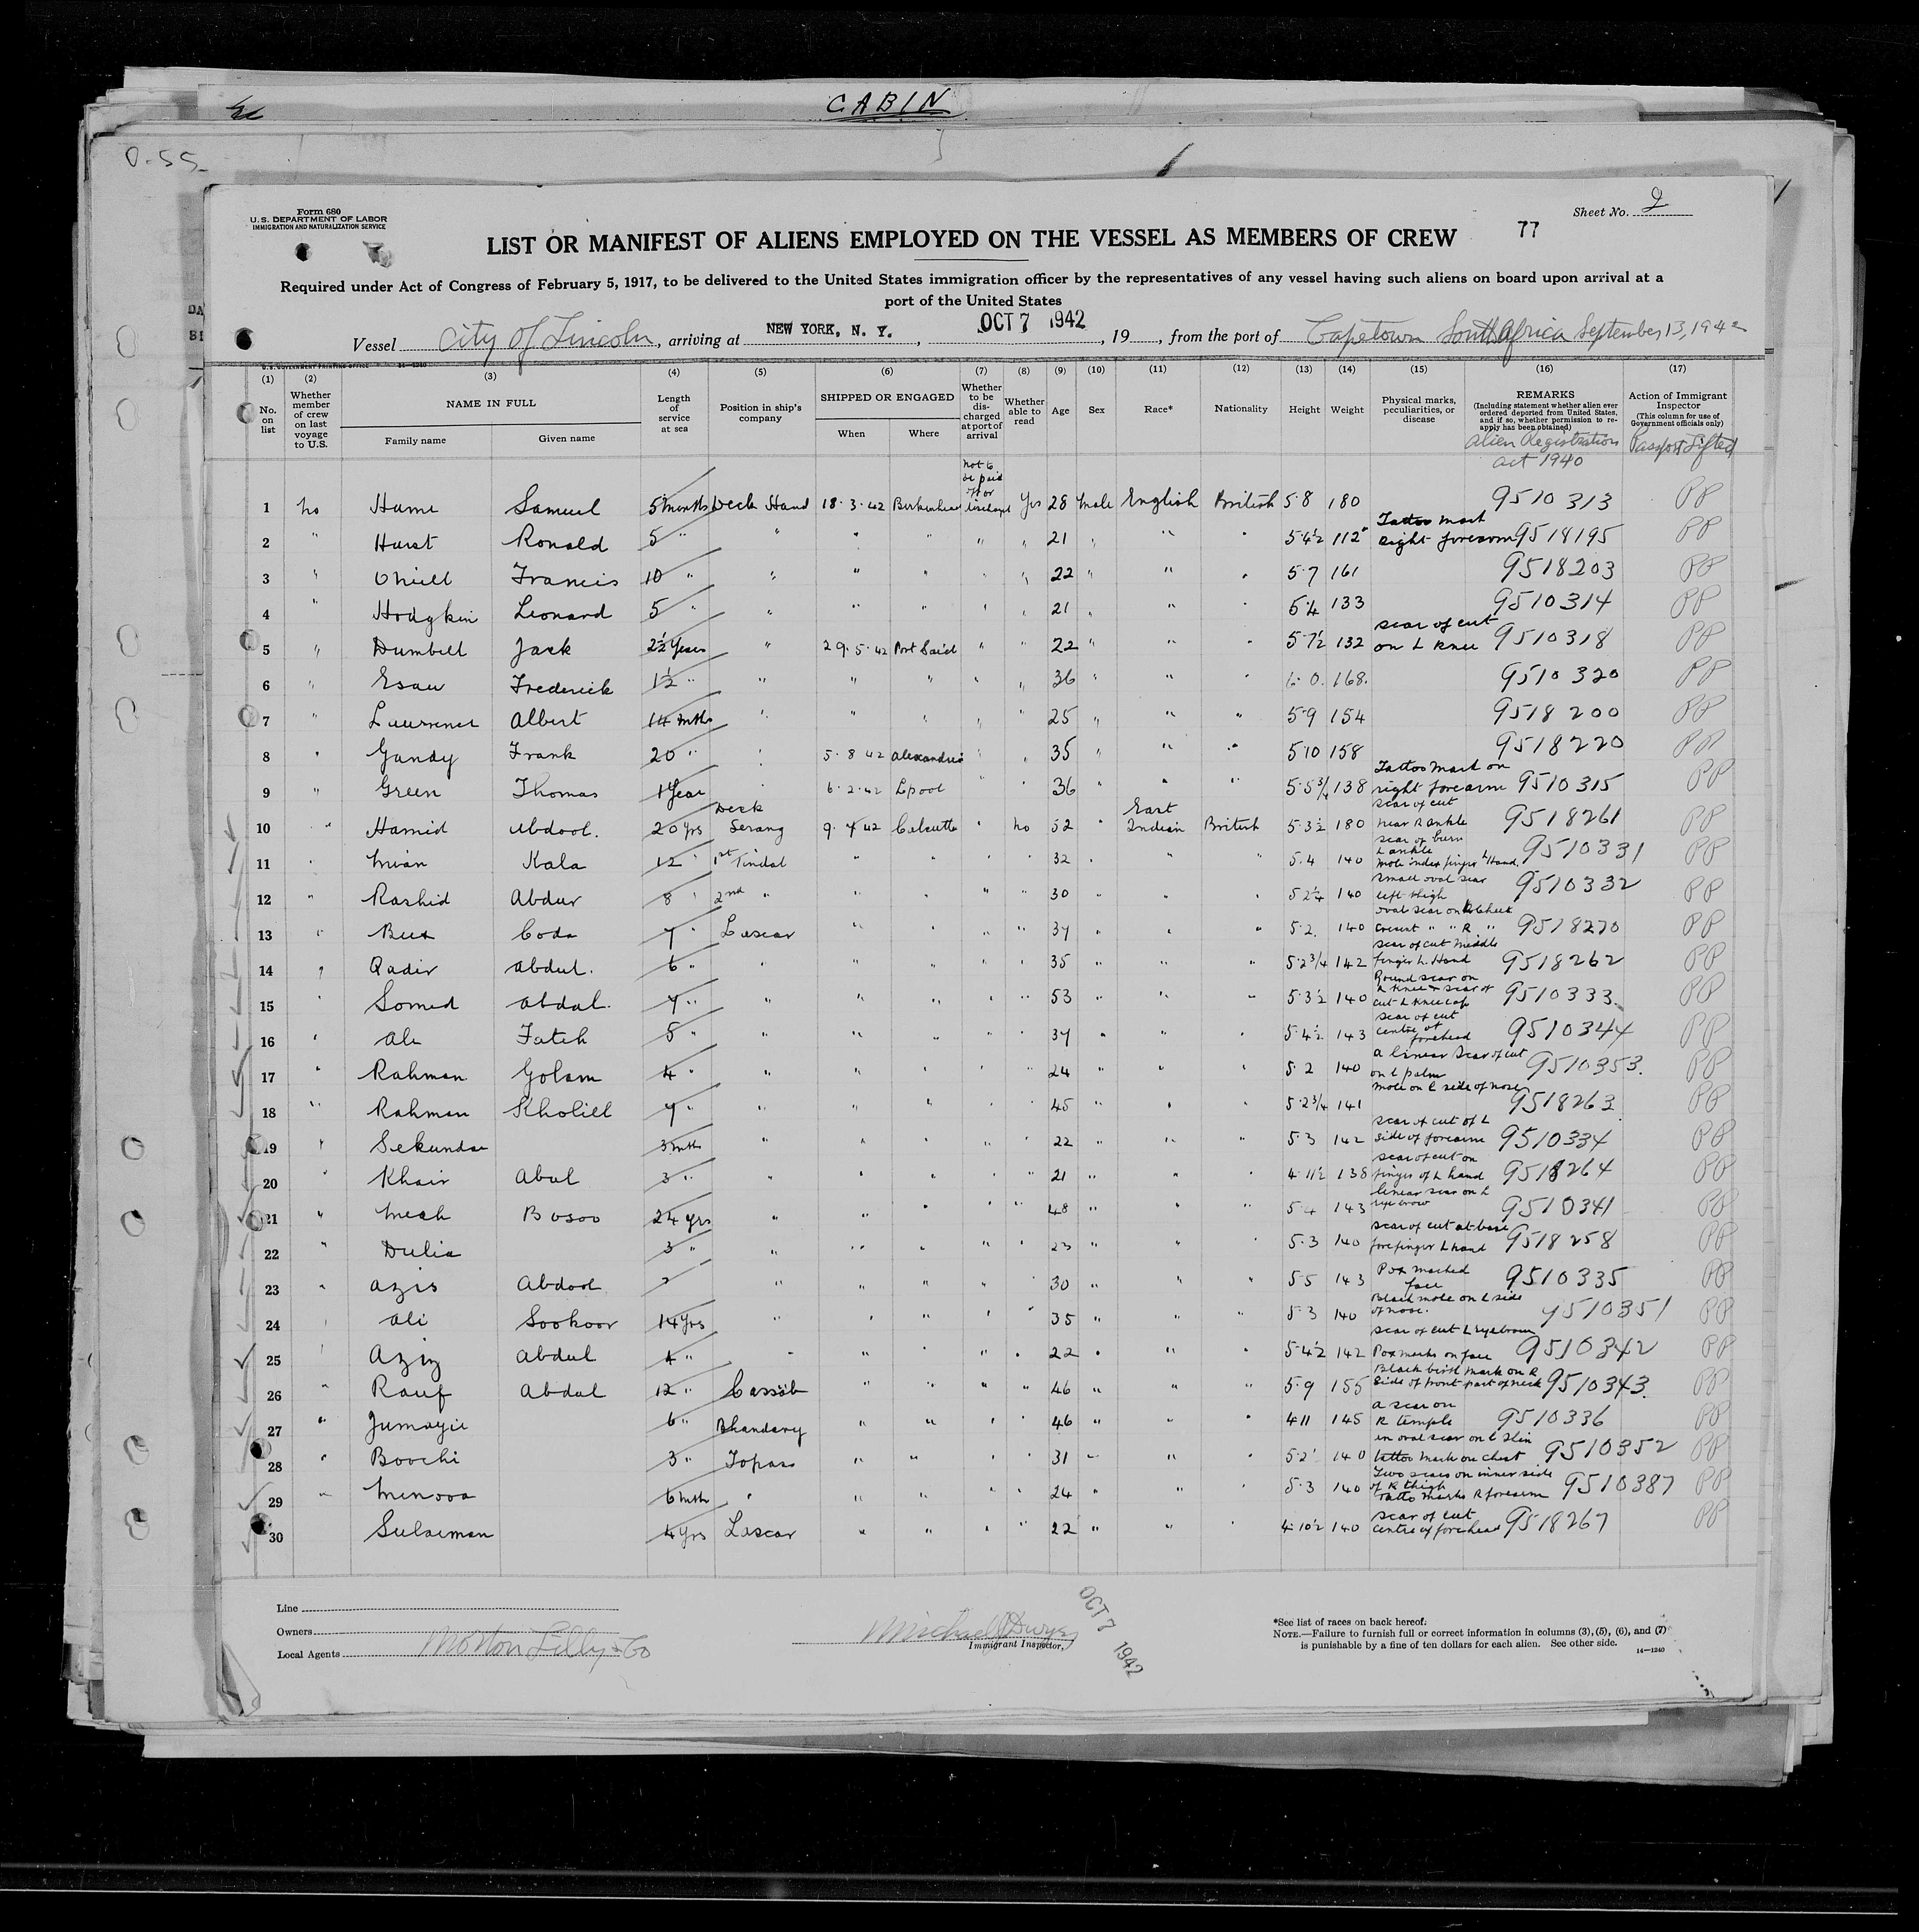 CABIN
0-55
Form 680
U.S. DEPARTMENT OF LABOR
IMMIGRATION AND NATURALIZATION SERVICE
Sheet No. 2
77
LIST OR MANIFEST OF ALIENS EMPLOYED ON THE VESSEL AS MEMBERS OF CREW
Required under Act of Congress of February 5, 1917, to be delivered to the United States immigration officer by the representatives of any vessel having such aliens on board upon arrival at a
port of the United States
Vessel City Of Lincoln, arriving at NEW YORK, N. Y., OCT 7 1942, 19, from the port of Capetown South Africa September 13, 1942
U.S. GOVERNMENT PRINTING OFFICE 14—1240
(1) (2) (3) (4) (5) (6) (7) (8) (9) (10) (11) (12) (13) (14) (15) (16) (17)
No. on list
Whether member of crew on last voyage to U.S.
NAME IN FULL
Family name Given name
Length of service at sea
Position in ship's company
SHIPPED OR ENGAGED
When Where
Whether to be discharged at port of arrival
Whether able to read
Age Sex Race* Nationality Height Weight
Physical marks, peculiarities, or disease
REMARKS
(Including statement whether alien ever ordered deported from United States, and if so, whether permission to re-apply has been obtained)
Alien Registration act 1940
Action of Immigrant Inspector
(This column for use of Government officials only)
Passport Lifted
1 no Hame Samuel 5 months Deck Hand 18.3.42 Birkenhead Not to be paid off or discharged Yes 28 male English British 5.8 180 9510313 PP
2 " Hurst Ronald 5 " " " " " " 21 " " " 5.4½ 112 Tattoo mark right forearm 9518195 PP
3 " Oniell Francis 10 " " " " " " 22 " " " 5.7 161 9518203 PP
4 " Hodgkin Leonard 5 " " " " " " 21 " " " 5.4 133 9510314 PP
5 " Dumbell Jack 2½ Years " 29.5.42 Port Said " " 22 " " " 5.7½ 132 scar of cut on L Knee 9510318 PP
6 " Esau Frederick 1½ " " " " " " 36 " " " 6.0. 168. 9510320 PP
7 " Lawrence Albert 14 mths " " " " " 25 " " " 5.9 154 9518200 PP
8 " Gandy Frank 20 " " 5.8.42 Alexandria " " 35 " " " 5.10 158 9518220 PP
9 " Green Thomas 1 Year " 6.2.42 Lpool " " 36 " " " 5.5¾ 138 Tattoo Mark on right forearm 9510315 PP
10 " Hamid Abdool. 20 yrs Deck Serang 9.4.42 Calcutta " no 52 " East Indian British 5.3½ 180 scar of cut near R ankle 9518261 PP
11 " Mian Kala 12 " 1st Tindal " " " " 32 " " " 5.4 140 scar of burn L ankle mole index finger L Hand. 9510331 PP
12 " Rashid Abdur 8 " 2nd " " " " " 30 " " " 5.2¼ 140 small oval scar left thigh 9510332 PP
13 " Bux Coda 7 " Lascar " " " " 37 " " " 5.2. 140 oval scar on cheek 9518270 PP
14 " Qadir Abdul. 6 " " " " " " 35 " " " 5.2¾ 142 scar of cut middle finger L. Hand 9518262 PP
15 " Somed Abdul. 7 " " " " " " 53 " " " 5.3½ 140 Round scar on L Knee & scar of cut L Knee cap 9510333 PP
16 " Ali Fateh 5 " " " " " " 37 " " " 5.4½ 143 scar of cut centre of forehead 9510344 PP
17 " Rahman Golam 4 " " " " " " 24 " " " 5.2 140 a linear scar of cut on L palm 9510353. PP
18 " Rahman Kholill 7 " " " " " " 45 " " " 5.2¾ 141 mole on L side of nose 9518263 PP
19 " Sekundar 3 mths " " " " " 22 " " " 5.3 142 scar of cut of L side of forearm 9510334 PP
20 " Khair Abul 3 " " " " " " 21 " " " 4.11½ 138 scar of cut on finger of L hand 9518264 PP
21 " Meah Bosoo 24 yrs " " " " " 48 " " " 5.4 143 linear scar on L eyebrow 9510341 PP
22 " Dulia 3 " " " " " " 23 " " " 5.3 140 scar of cut at base forefinger L hand 9518258 PP
23 " Azis Abdool " " " " " 30 " " " 5.5 143 Pox marked face 9510335 PP
24 " Ali Sookoor 14 yrs " " " " " 35 " " " 5.3 140 Black mole on L side of nose. 9510351 PP
25 " Aziz Abdul 4 " " " " " " 22 " " " 5.4½ 142 scar of cut L eyebrow Pox marks on face 9510342 PP
26 " Rauf Abdul 12 " Cassab " " " " 46 " " " 5.9 155 Black birth mark on R side of front part of neck 9510343. PP
27 " Jumayie 6 " Bhandary " " " " 46 " " " 4.11 145 a scar on R temple 9510336 PP
28 " Boochi 3 " Topass " " " " 31 " " " 5.2 140 oval scar on L shin tattoo mark on chest 9510352 PP
29 " Minooa 6 mths " " " " " 24 " " " 5.3 140 Two scars on inner side of R thigh Tatto marks R forearm 9510387 PP
30 Sulaiman 4 yrs Lascar " " " " 22 " " " 4.10½ 140 scar of cut centre of forehead 9518267 PP
Line
Owners
Local Agents Morton Lilly & Co
Michael J Dwyer
Immigrant Inspector.
OCT 7 1942
*See list of races on back hereof.
NOTE.—Failure to furnish full or correct information in columns (3), (5), (6), and (7)
is punishable by a fine of ten dollars for each alien. See other side.
14—1240